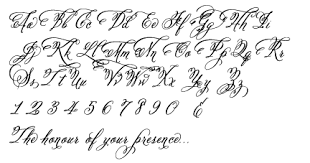 Aa Bb Cc Dd Ee Ff Gg Hh Ii
Jj Kk Ll Mm Nn Oo Pp Qq Rr
Ss Tt Uu Vv Ww Xx Yy Zz
1 2 3 4 5 6 7 8 9 0
The honour of your presence...